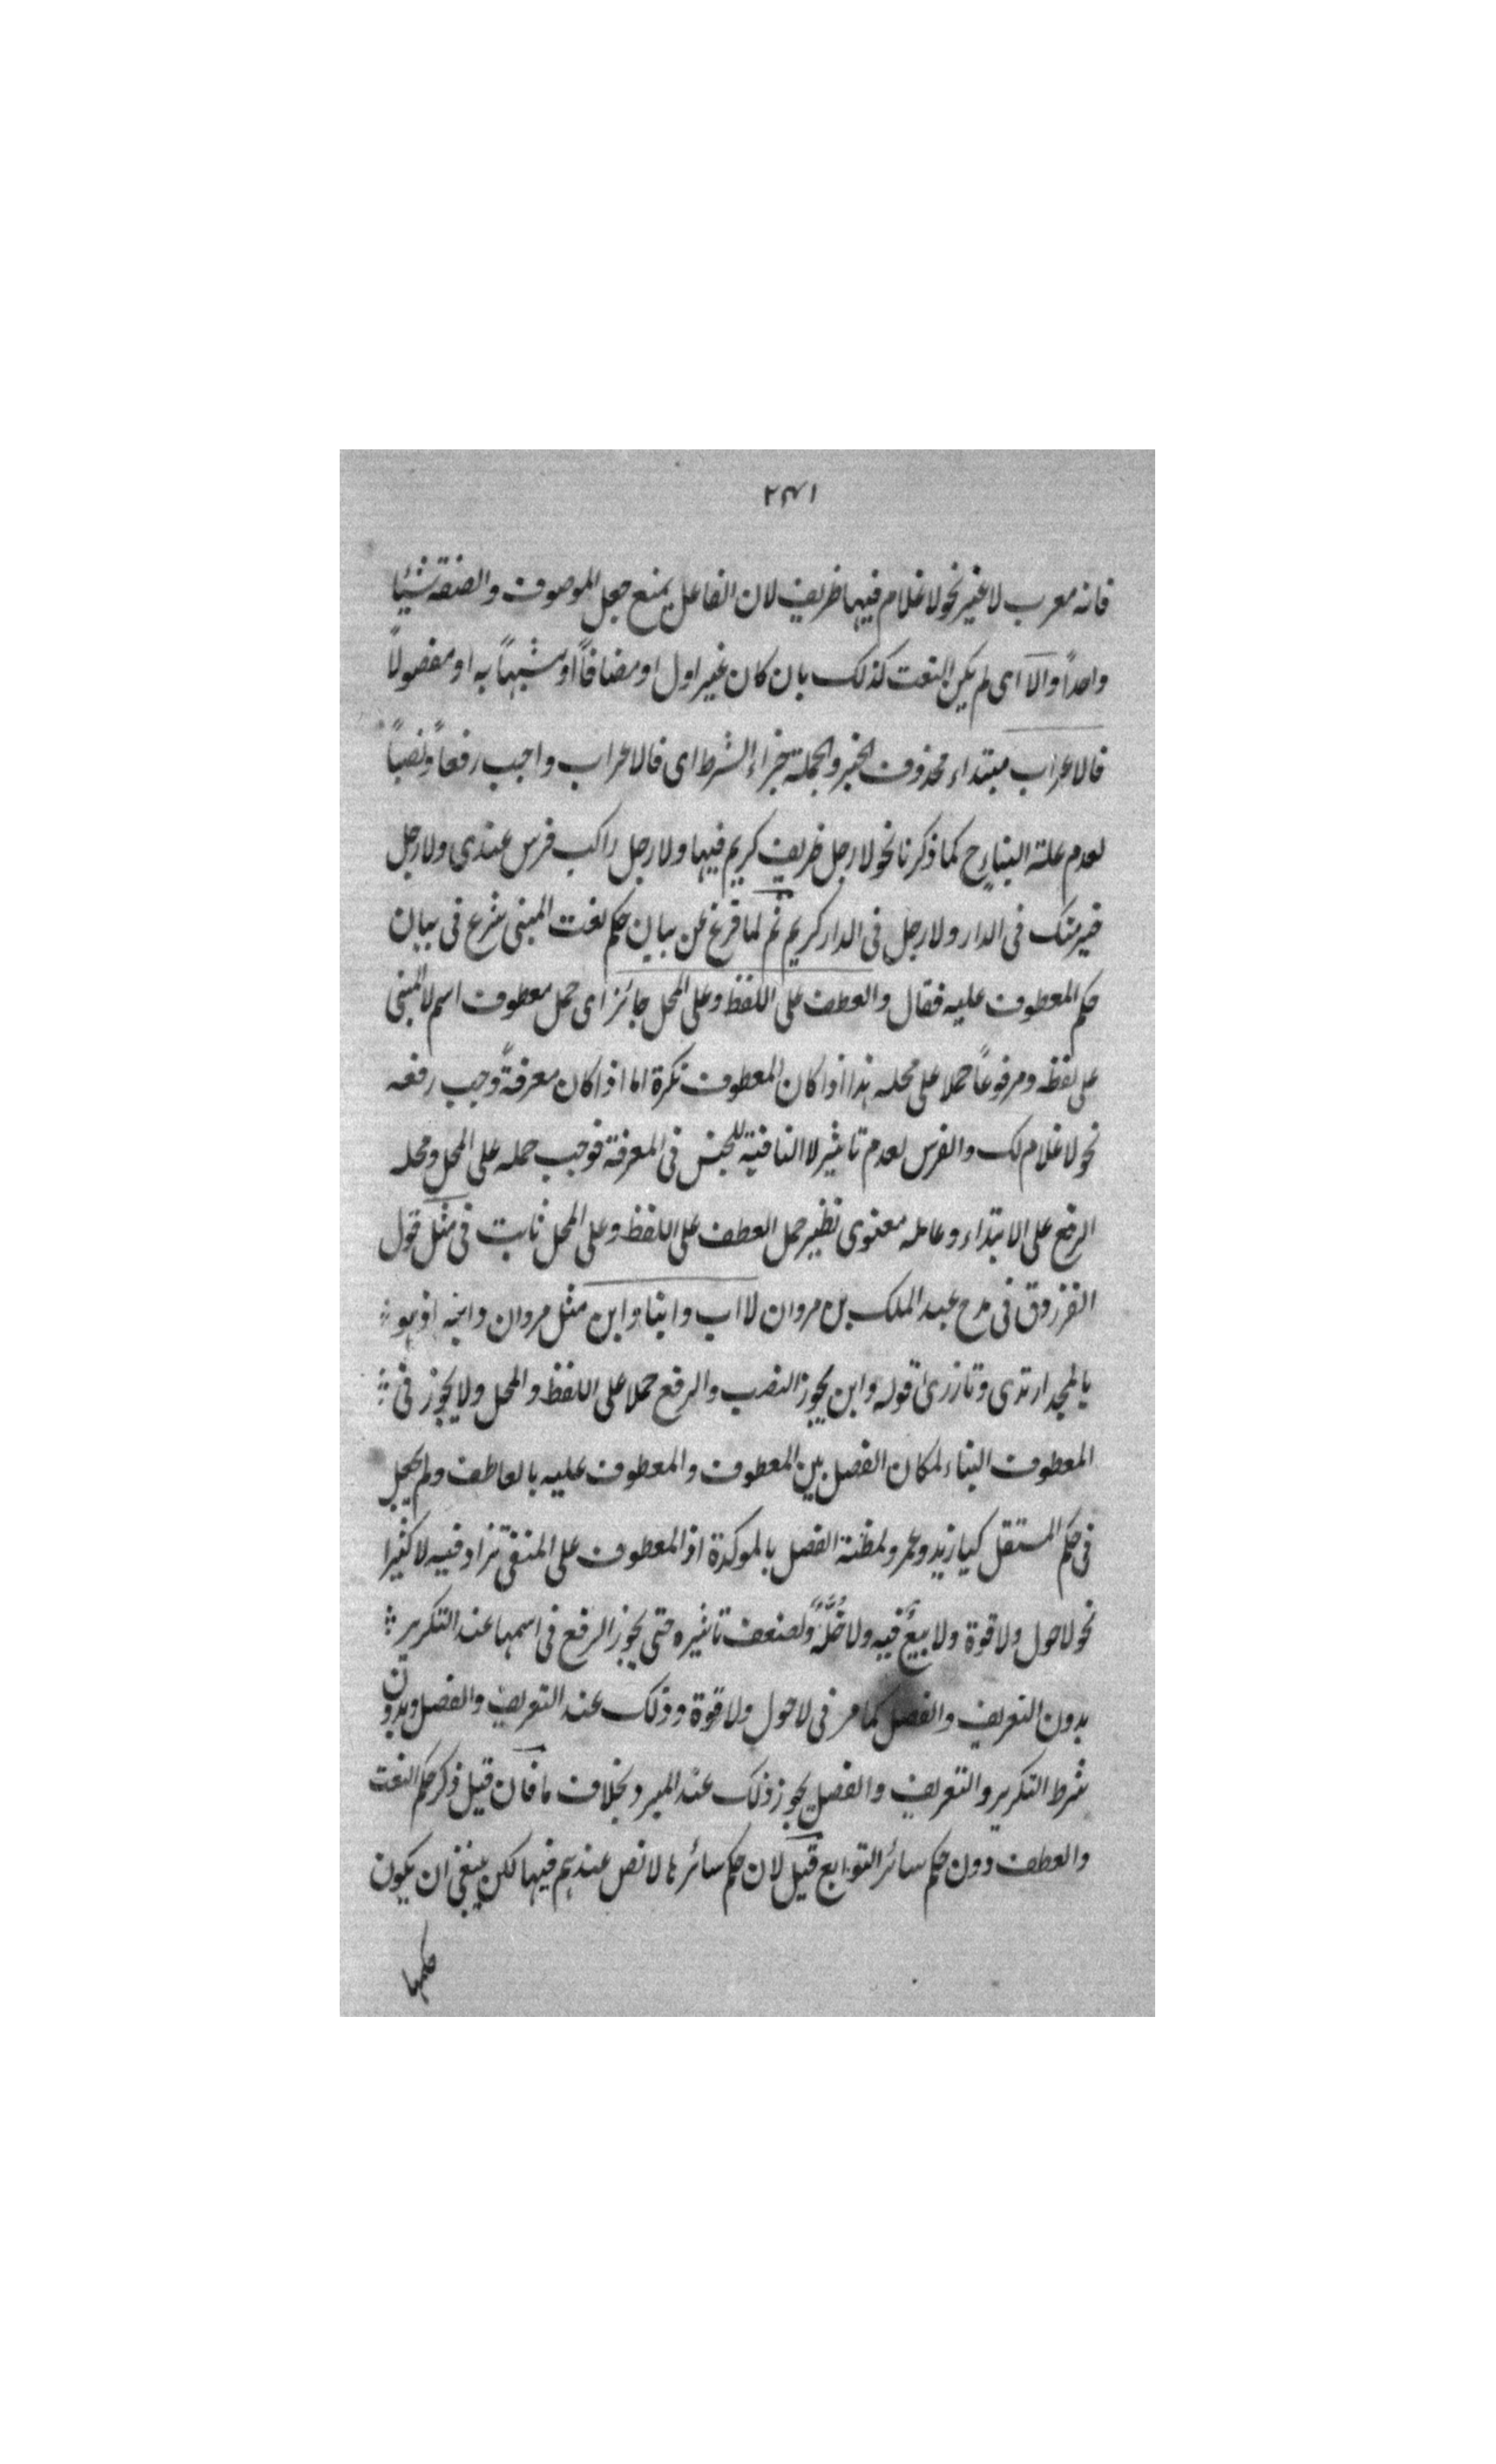 ٢٣١
فانه معرب لا غير نحو لا غلام فيها ظريف لان الفاعل يمنع جعل الموصوف والصفة شيئا
واحداً والا اى لم يكن النعت كذلك بان كان غير اول او مضافاً او مشبهاً به او مفصولاً
فالاعراب مبتداء محذوف الخبر والجملة جزاء الشرط اى فالاعراب واجب رفعاً ونصباً
لعدم علة البناء ح كما ذكرنا نحو لا رجل ظريف كريم فيها ولا رجل راكب فرس عندى ولا رجل
خير منك فى الدار ولا رجل فى الدار كريم ثم لما فرغ عن بيان حكم نعت المبنى شرع فى بيان
حكم المعطوف عليه فقال والعطف على اللفظ وعلى المحل جائز اى حمل معطوف اسم لا المبنى
على لفظه ومرفوعاً حملا على محله هذا اذا كان المعطوف نكرة اما اذا كان معرفةً وجب رفعه
نحو لا غلام لك والفرس لعدم تاثير لا النافية للجنس فى المعرفة فوجب حمله على المحل ومحله
الرفع على الابتداء وعامله معنوى نظير حمل العطف على اللفظ وعلى المحل ثابت فى مثل قول
الفرزوق فى مدح عبد الملك بن مروان لا اب وابنا وابن مثل مروان وابنه اذ هو
بالمجد ارتدى وتازرى قوله وابن يجوز النصب والرفع حملا على اللفظ والمحل ولا يجوز فى
المعطوف البناء لمكان الفصل بين المعطوف والمعطوف عليه بالعاطف ولم يجعل
فى حكم المستقل كيا زيد وعمرو لمظنة الفصل بالموكدة اذ المعطوف على المنفى تزاد فيه لا كثيرا
نحو لا حول ولا قوة ولا بيعٌ فيه ولا خُلَّةٌ ولضعف تاثيره حتى يجوز الرفع فى اسمها عند التكرير
بدون التعريف والفصل كما مر فى لا حول ولا قوة وذلك عند التعريف والفصل وبدون
شرط التكرير والتعريف والفصل يجوز ذلك عند المبرد بخلاف ما فان قيل ذكر حكم النعت
والعطف دون حكم سائر التوابع قيل لان حكم سائرها لا نص عندهم فيها لكن ينبغى ان يكون
حكمها